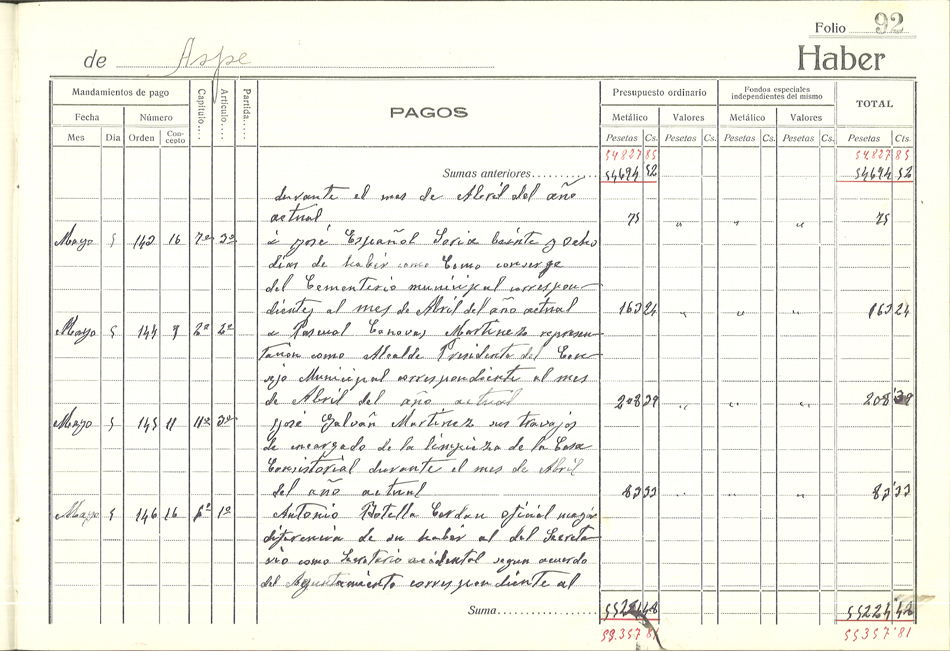 Folio 92
de Aspe Haber
Mandamientos de pago Capítulo.... Artículo.... Partida.... PAGOS Presupuesto ordinario Fondos especiales independientes del mismo TOTAL
Fecha Número Metálico Valores Metálico Valores
Mes Día Orden Concepto Pesetas Cs. Pesetas Cs. Pesetas Cs. Pesetas Cs. Pesetas Cts
54827 85 54827 85
Sumas anteriores........... 54694 52 54694 52
durante el mes de Abril del año
actual 75 " " " 75
Mayo 5 143 16 7º 3º a José Español Soria beinte y ocho
dias de haber como Como conserge
del Cementerio municipal correspon-
diente al mes de Abril del año actual 163 24 " " " 163 24
Mayo 5 144 9 2º 2º a Pascual Canovas Martinez represen-
tación como Alcalde Presidente del Con-
sejo Municipal correspondiente al mes
de Abril del año actual 208 39 " " " 208 39
Mayo 5 145 11 11º 3º José Galvañ Martinez sus travajos
de encargado de la limpieza de la Casa
Consistorial durante el mes de Abril
del año actual 83 33 " " " 83 33
Mayo 5 146 16 6º 1º Antonio Botella Cerdan oficial mayor
diferencia de su haber al del Secreta-
rio como Secretario accidental segun acuerdo
del Ayuntamiento correspondiente al
Suma.................. 55224 48 55224 48
55.357 81 55357 81